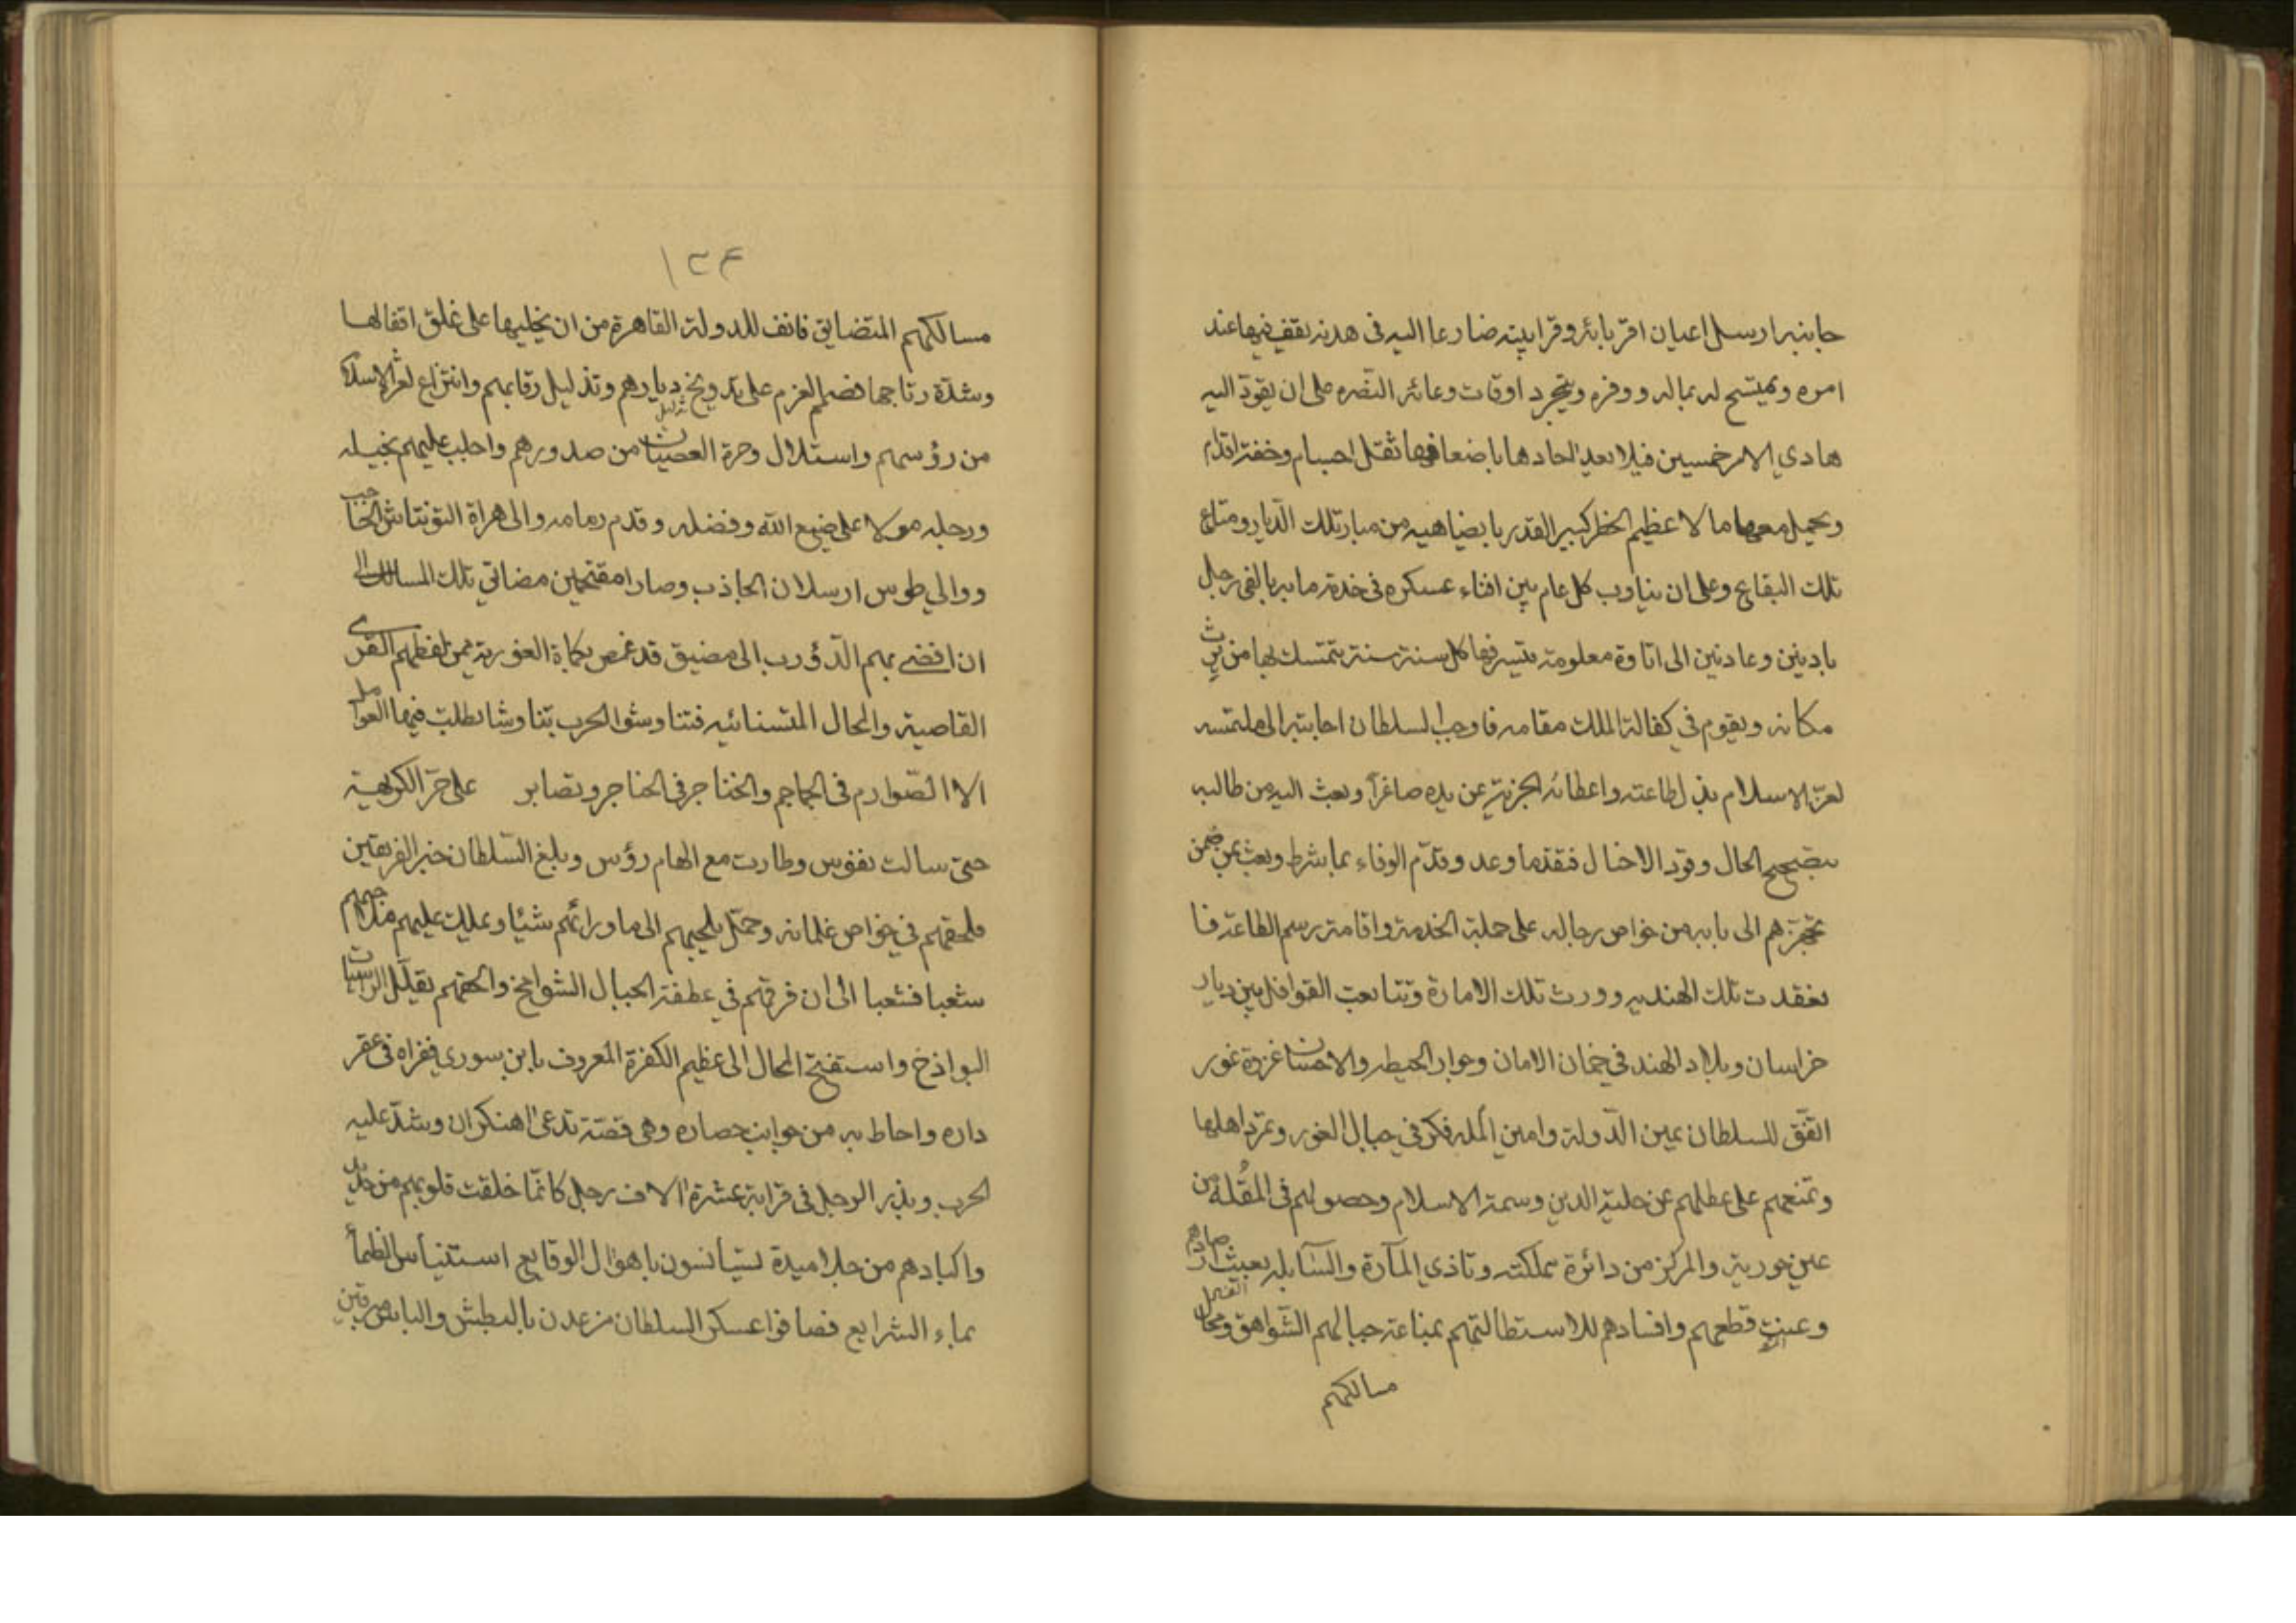 جانبه ارسل اعيان اقربائه وقرابيته ضارعا اليه فى هدنه يقف فيها عند
امره ويميتح له بماله ووفره ويتجرد اوقات دعائه النصره على ان يقود اليه
هادي الامر خمسين فيلا بعيد احادها باضعافها ثقل اجسام وخفة اقدام
ويحمل معها مالا عظيم الخطر كبير القدر بما يضاهيه من مبار تلك الديار ومتاع
تلك البقاع وعلى ان يناوب كل عام بين افناء عسكره فى خدمة بابه بالفى رجل
بادين وعادين الى اتاوة معلومة يلتزمها كل سنة سنة يتمسك بها من يرث
مكانه ويقوم في كفالة الملك مقامه فاوجب السلطان اجابته الى ملتمسه
لعز الاسلام بذل طاعته واعطائه الجزية عن يده صاغرا وبعث اليه من طالبه
بتصحيح الحال وقود الافيال فنقد ما وعد وقدّم الوفاء بما شرط وبعث بمن ضمن
تجهيزهم الى بابه من خواص رجاله على جملة الخدمة واقامة رسم الطاعة فا
نعقدت تلك الهدنه وورث تلك الامارة وتتابعت القوافل بين ديار
خراسان وبلاد الهند في ضمان الامان وجوار الحيطه والاحسان غزوة غور
اتفق للسلطان يمين الدولة وامين الملة فكر في جبال الغور وتمرد اهلها
وتمنعهم على عطلهم عن حلية الدين وسمة الاسلام وحصولهم فى المقلة من
عين حوزته والمركز من دائرة مملكته وتاذي المآرة والسابله بعيث
وعنت قطعهم وافسادهم للاستطالتهم بمناعة جبالهم الشواهق ومجال
مسالكهم
١٣٤
مسالكهم المتضايق فانف للدولة القاهرة من ان يخليها على غلق اقفالها
وشدّة رتاجها فصمم العزم على تدويخ ديارهم وتذليل رقابهم وانتزاع لعز الاسلام
من رؤسهم واستلال وحرة العصيان من صدورهم واجلب عليهم بخيله
ورجله معولا على صنع الله وفضله وقدم امامه والى هراة التونتاش الحاجب
ووالي طوس ارسلان الجاذب وصارا مقتحمين مضائق تلك المسالك الى
ان افضى بهم الدؤوب الى مضيق قد غص بكماة الغورية ممن لفظهم القرى
القاصية والمحال المتنائيه فتناوشوا الحرب تناوشا بطلت فيها العوامل
الا الصّوارم فى الجماجم والخناجر فى الحناجر وتصابر على حرّ الكريهة
حتى سالت نفوس وطارت مع الهام رؤس وبلغ السلطان خبر الفريقين
فلحقهم في خواص غلمانه وجعل يلجيهم الى ما ورائهم شيئا وعليك عليهم
شعبا فشعبا الى ان فرقهم في عطفة الجبال الشوامخ والحقهم بقلل الراسيات
البواذخ واستفتح المجال الى عظيم الكفرة المعروف بابن سوري فغزاه فى عقر
داره واحاط به من جوانب حصاره وهى قصبة تدعى اهنكران وشدّ عليه
الحرب وبرز الرجل فى قرابة عشرة الاف رجل كانما خلقت قلوبهم من حديد
واكبادهم من جلاميدة يستأنسون باهوال الوقايع استيناس الظمأ
بماء الشرايع فصافوا عسكر السلطان مرعدين بالبطش والباس مبرقين